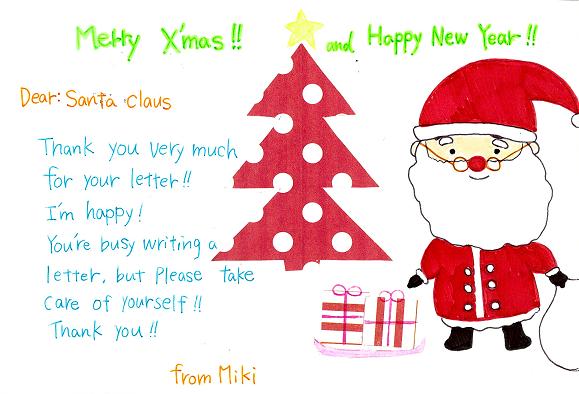 Merry X'mas!! and Happy New Year!!
Dear: Santa Claus
Thank you very much
for your letter!!
I'm happy!
You're busy writing a
letter, but please take
care of yourself!!
Thank you!!
from Miki